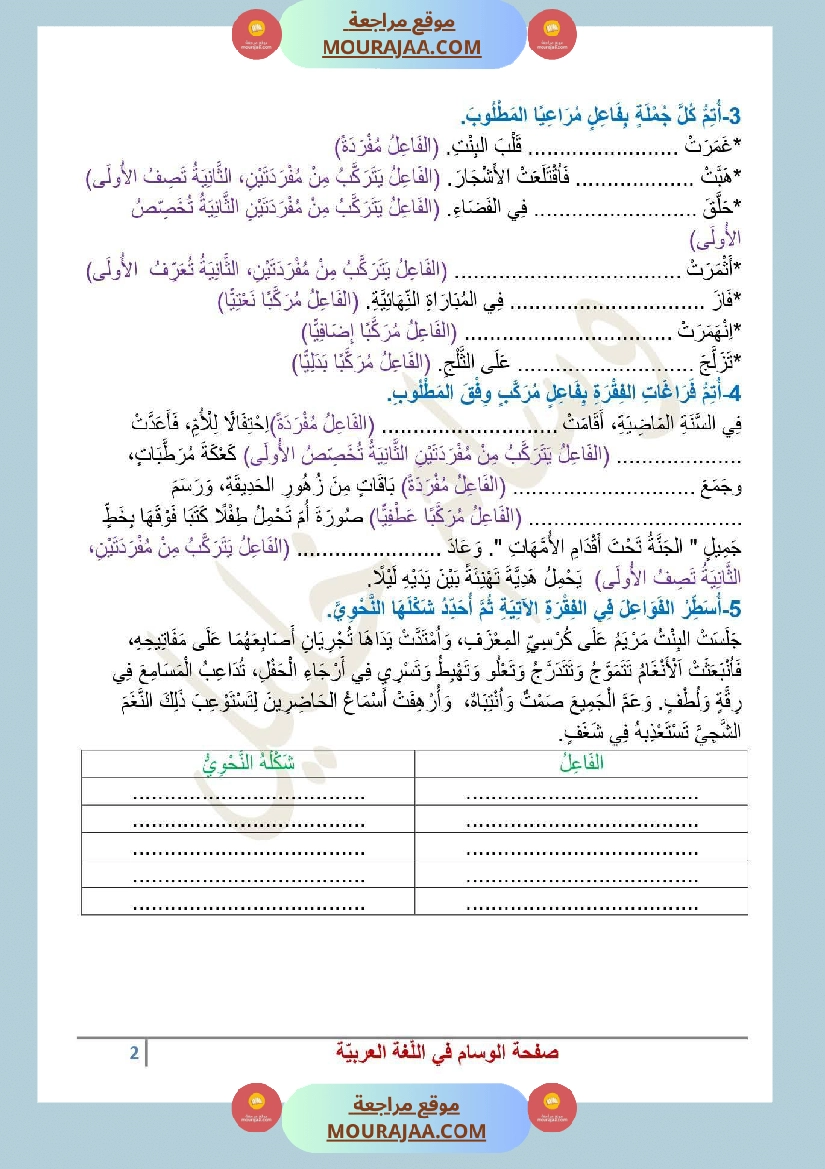 موقع مراجعة
MOURAJAA.COM
3-أُتِمُّ كُلَّ جُمْلَةٍ بِفَاعِلٍ مُرَاعِيًا المَطْلُوبَ.
*غَمَرَتْ ........................ قَلْبَ البِنْتِ. (الفَاعِلُ مُفْرَدَةٌ)
*هَبَّتْ ................... فَاُقْتَلَعَتْ الأَشْجَارَ. (الفَاعِلُ يَتَرَكَّبُ مِنْ مُفْرَدَتَيْنِ، الثَّانِيَةُ تَصِفُ الأُولَى)
*حَلَّقَ .......................... فِي الفَضَاءِ. (الفَاعِلُ يَتَرَكَّبُ مِنْ مُفْرَدَتَيْنِ الثَّانِيَةُ تُخَصِّصُ
الأُولَى)
*أَثْمَرَتْ .................................... (الفَاعِلُ يَتَرَكَّبُ مِنْ مُفْرَدَتَيْنِ، الثَّانِيَةُ تُعَرِّفُ الأُولَى)
*فَازَ ............................... فِي المُبَارَاةِ النِّهَائِيَّةِ. (الفَاعِلُ مُرَكَّبًا نَعْتِيًّا)
*اِنْهَمَرَتْ ................................. (الفَاعِلُ مُرَكَّبًا إِضَافِيًّا)
*تَزَلَّجَ ............................ عَلَى الثَّلْجِ. (الفَاعِلُ مُرَكَّبًا بَدَلِيًّا)
4-أُتِمُّ فَرَاغَاتِ الفِقْرَةِ بِفَاعِلٍ مُرَكَّبٍ وِفْقَ المَطْلُوبِ.
فِي السَّنَةِ المَاضِيَةِ، أَقَامَتْ ............................ (الفَاعِلُ مُفْرَدَةً)اِحْتِفَالًا لِلْأُمِّ، فَأَعَدَّتْ
.................... (الفَاعِلُ يَتَرَكَّبُ مِنْ مُفْرَدَتَيْنِ الثَّانِيَةُ تُخَصِّصُ الأُولَى) كَعْكَةَ مُرَطَّبَاتٍ،
وجَمَعَ ............................. (الفَاعِلُ مُفْرَدَةٌ) بَاقَاتٍ مِنَ زُهُورِ الحَدِيقَةِ، وَرَسَمَ
.................................. (الفَاعِلُ مُرَكَّبًا عَطْفِيًّا) صُورَةَ أُمّ تَحْمِلُ طِفْلًا كَتَبَا فَوْقَهَا بِخَطٍّ
جَمِيلٍ " الجَنَّةُ تَحْتَ أَقْدَامِ الأُمَّهَاتِ ". وَعَادَ ....................... (الفَاعِلُ يَتَرَكَّبُ مِنْ مُفْرَدَتَيْنِ،
الثَّانِيَةُ تَصِفُ الأُولَى) يَحْمِلُ هَدِيَّةَ تَهْنِئَةٍ بَيْنَ يَدَيْهِ لَيْلًا.
5-أُسَطِّرُ الفَوَاعِلَ فِي الفِقْرَةِ الآتِيَةِ ثُمَّ أُحَدِّدُ شَكْلَهَا النَّحْوِيَّ.
جَلَسَتْ البِنْتُ مَرْيَمُ عَلَى كُرْسِيِّ المِعْزَفِ، وَاُمْتَدَّتْ يَدَاهَا تُجْرِيَانِ أَصَابِعَهُمَا عَلَى مَفَاتِيحِهِ،
فَاُنْبَعَثَتْ اَلْأَنْغَامُ تَتَمَوَّجُ وَتَتَدَرَّجُ وَتَعْلُو وَتَهْبِطُ وَتَسْرِي فِي أَرْجَاءِ الْحَفْلِ، تُدَاعِبُ الْمَسَامِعَ فِي
رِقَّةٍ وَلُطْفٍ. وَعَمَّ الْجَمِيعَ صَمْتٌ وَاُنْتِبَاهٌ، وَأُرْهِفَتْ أَسْمَاعُ الحَاضِرِينَ لِتَسْتَوْعِبَ ذَلِكَ النَّغَمَ
الشَّجِيَّ تَسْتَعْذِبهُ فِي شَغَفٍ.
الفَاعِلُ شَكْلُهُ النَّحْوِيُّ
..................................... .....................................
..................................... .....................................
..................................... .....................................
..................................... .....................................
..................................... .....................................
صفحة الوسام في اللّغة العربيّة 2
موقع مراجعة
MOURAJAA.COM